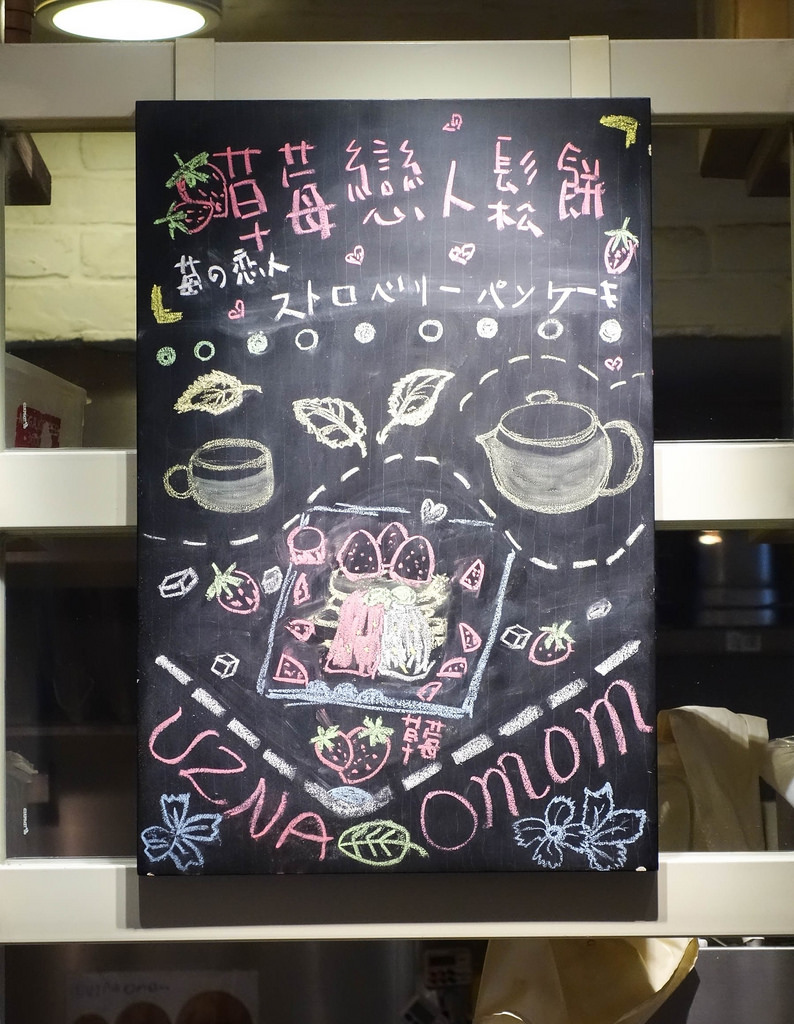 草莓戀人鬆餅
苺の恋人
ストロベリーパンケーキ
草莓
UZNA
omom